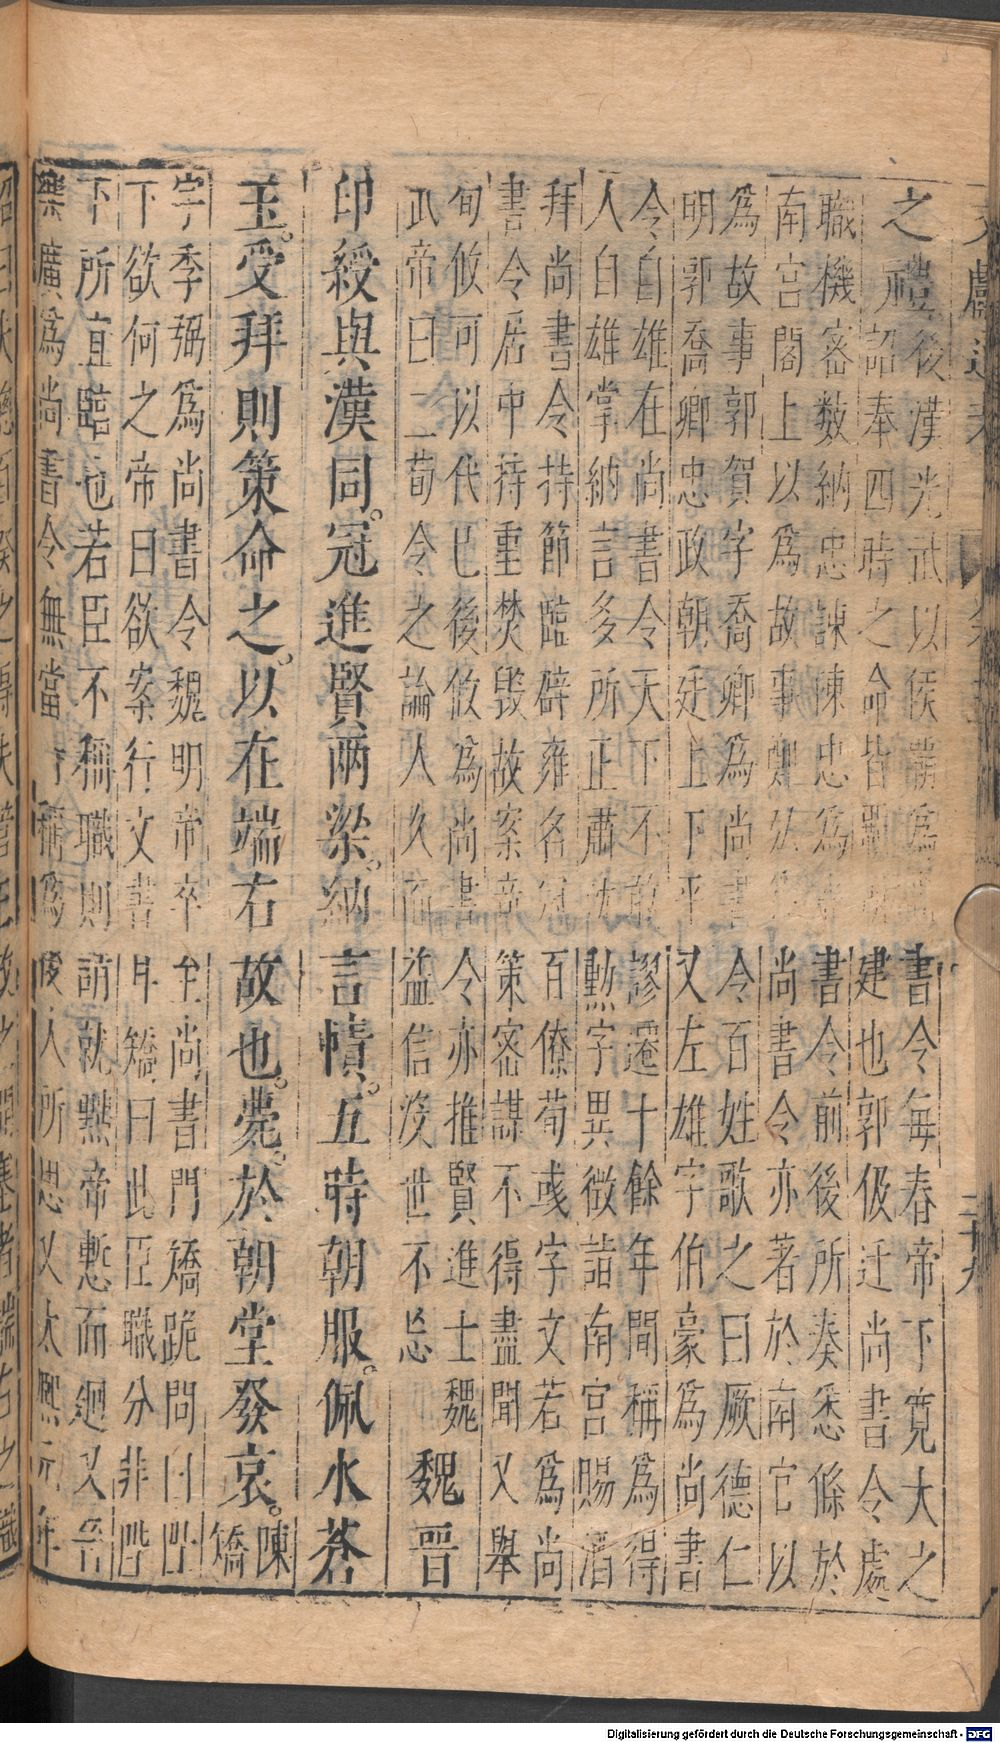 之
豐後漢光武以侯霸為尚書令每春帝下寬大之
所詔奉四時之命皆霸所建也郭伋迁尚書令處
職機密数納忠諫陳忠為尚書令前後所奏悉條於
南宮閣上以為故事鄭弘為尚書令亦著於南官以
為故事郭賀字喬卿為尚書令百姓歌之曰厥德仁
明郭喬卿忠政朝廷上下平又左雄字伯豪為尚書
令自雄在尚書令天下不敢謬選十餘年間稱為得
人自雄掌納言多所正肅勳字異徵詔南宮賜酒
拜尚書令持節臨辟雍名冠百僚荀彧字文若為尚
書令居中持重焚毀故案帝策密謀不得盡聞又舉
旬攸可以代已後攸為尚書令亦推賢進士魏
武帝曰二荀令之論人久而益信沒世不忘
魏晉
印綬與漢同。冠進賢兩梁。納言幘。五時朝服。佩水蒼
玉。受拜則策命之。以在端右故也。薨。於朝堂發哀。陳矯
字季弼為尚書令魏明帝卒至尚書門矯跪問曰陛
下欲何之帝曰欲案行文書耳矯曰此臣職分非陛
下所宜臨也若臣不稱職則請就黜帝慙而迴又晉
樂廣為尚書令無當時稱為後人所思又太熙元年
二十九
Digitalisierung gefördert durch die Deutsche Forschungsgemeinschaft - DFG